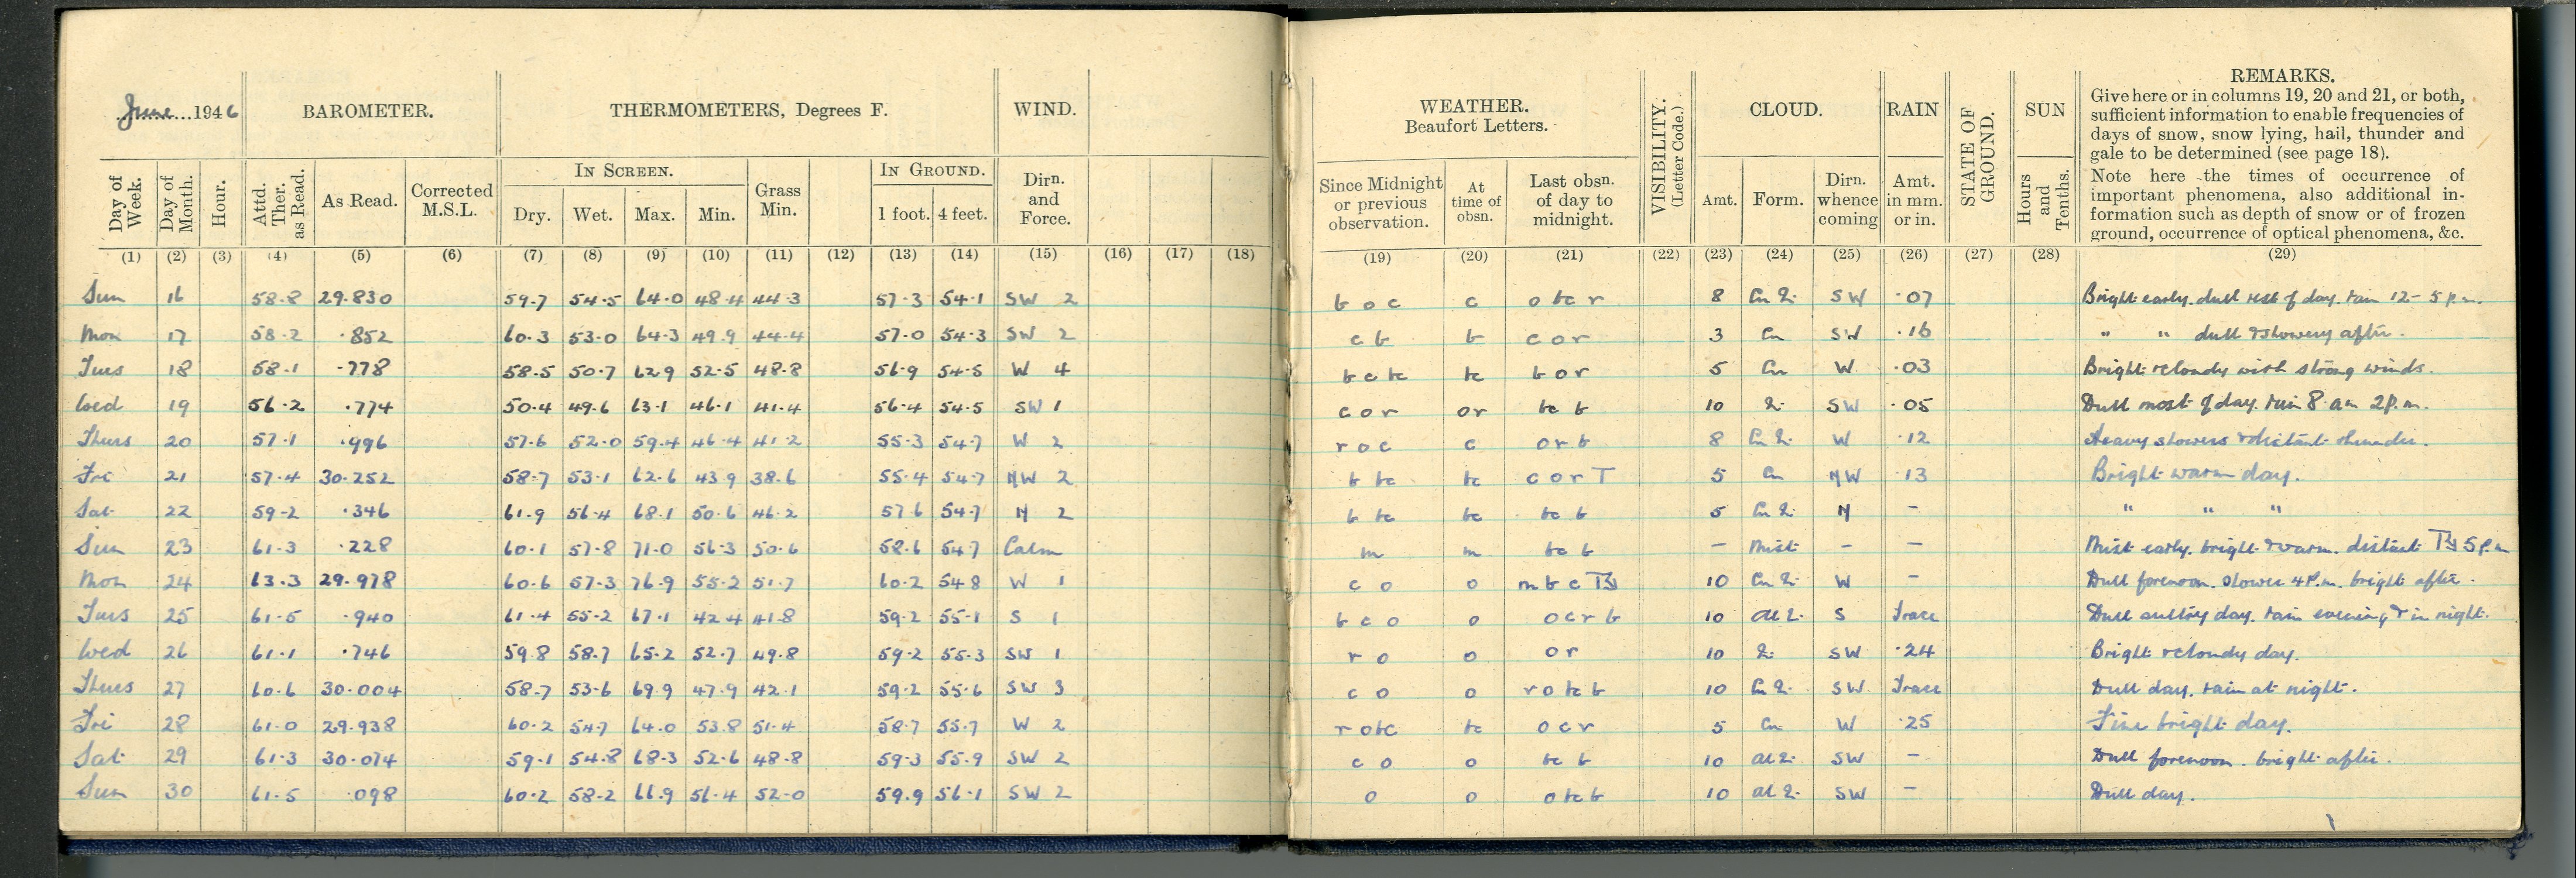 June 1946
BAROMETER.
THERMOMETERS, Degrees F.
WIND.
WEATHER.
Beaufort Letters.
VISIBILITY.
(Letter Code.)
CLOUD.
RAIN
STATE OF
GROUND.
SUN
REMARKS.
Give here or in columns 19, 20 and 21, or both,
sufficient information to enable frequencies of
days of snow, snow lying, hail, thunder and
gale to be determined (see page 18).
Note here the times of occurrence of
important phenomena, also additional in-
formation such as depth of snow or of frozen
ground, occurrence of optical phenomena, &c.
IN SCREEN.
IN GROUND.
Day of Week.
Day of Month.
Hour.
Attd. Ther. as Read.
As Read.
Corrected M.S.L.
Dry. Wet. Max. Min.
Grass Min.
1 foot. 4 feet.
Dirn. and Force.
Since Midnight or previous observation.
At time of obsn.
Last obsn. of day to midnight.
Amt. Form.
Dirn. whence coming
Amt. in mm. or in.
Hours and Tenths.
(1) (2) (3) (4) (5) (6) (7) (8) (9) (10) (11) (12) (13) (14) (15) (16) (17) (18) (19) (20) (21) (22) (23) (24) (25) (26) (27) (28) (29)
Sun 16 58.8 29.830 59.7 54.5 64.0 48.4 44.3 57.3 54.1 SW 2 b o c c o bc r 8 SW .07 Bright early. dull rest of day. rain 12-5 p.m.
Mon 17 58.2 .852 60.3 53.0 64.3 49.9 44.4 57.0 54.3 SW 2 c b b c o r 3 Cu SW .16 " " dull & showery after.
Tues 18 58.1 .778 58.5 50.7 62.9 52.5 48.8 56.9 54.5 W 4 b c bc bc b o r 5 Cu W .03 Bright & cloudy with strong winds.
Wed 19 56.2 .774 50.4 49.6 63.1 46.1 41.4 56.4 54.5 SW 1 c o r or bc b 10 SW .05 Dull most of day. rain 8 am 2 p.m.
Thurs 20 57.1 .996 57.6 52.0 59.4 46.4 41.2 55.3 54.7 W 2 r o c c o r b 8 W .12 Heavy showers & distant thunder.
Fri 21 57.4 30.252 58.7 53.1 62.6 43.9 38.6 55.4 54.7 NW 2 b bc bc c o r T 5 Cu NW .13 Bright warm day.
Sat 22 59.2 .346 61.9 56.4 68.1 50.6 46.2 57.6 54.7 N 2 b bc bc bc b 5 N - " " "
Sun 23 61.3 .228 60.1 57.8 71.0 56.3 50.6 58.6 54.7 Calm m m bc b - Mist - - Mist early. bright & warm. distant 5 p.m
Mon 24 63.3 29.978 60.6 57.3 76.9 55.2 51.7 60.2 54.8 W 1 c o o m b c 10 W - Dull forenoon. shower 4 P.m. bright after.
Tues 25 61.5 .940 61.4 55.2 67.1 42.4 41.8 59.2 55.1 S 1 b c o o o c r b 10 S Trace Dull sultry day. rain evening & in night.
Wed 26 61.1 .746 59.8 58.7 65.2 52.7 49.8 59.2 55.3 SW 1 r o o o r 10 SW .24 Bright & cloudy day.
Thurs 27 60.6 30.004 58.7 53.6 69.9 47.9 42.1 59.2 55.6 SW 3 c o o r o bc b 10 SW Trace Dull day. rain at night.
Fri 28 61.0 29.938 60.2 54.7 64.0 53.8 51.4 58.7 55.7 W 2 r o bc bc o c r 5 Cu W .25 Fine bright day.
Sat 29 61.3 30.074 59.1 54.8 68.3 52.6 48.8 59.3 55.9 SW 2 c o o bc b 10 SW - Dull forenoon. bright after.
Sun 30 61.5 .098 60.2 58.2 66.9 56.4 52.0 59.9 56.1 SW 2 o o o bc b 10 SW - Dull day.